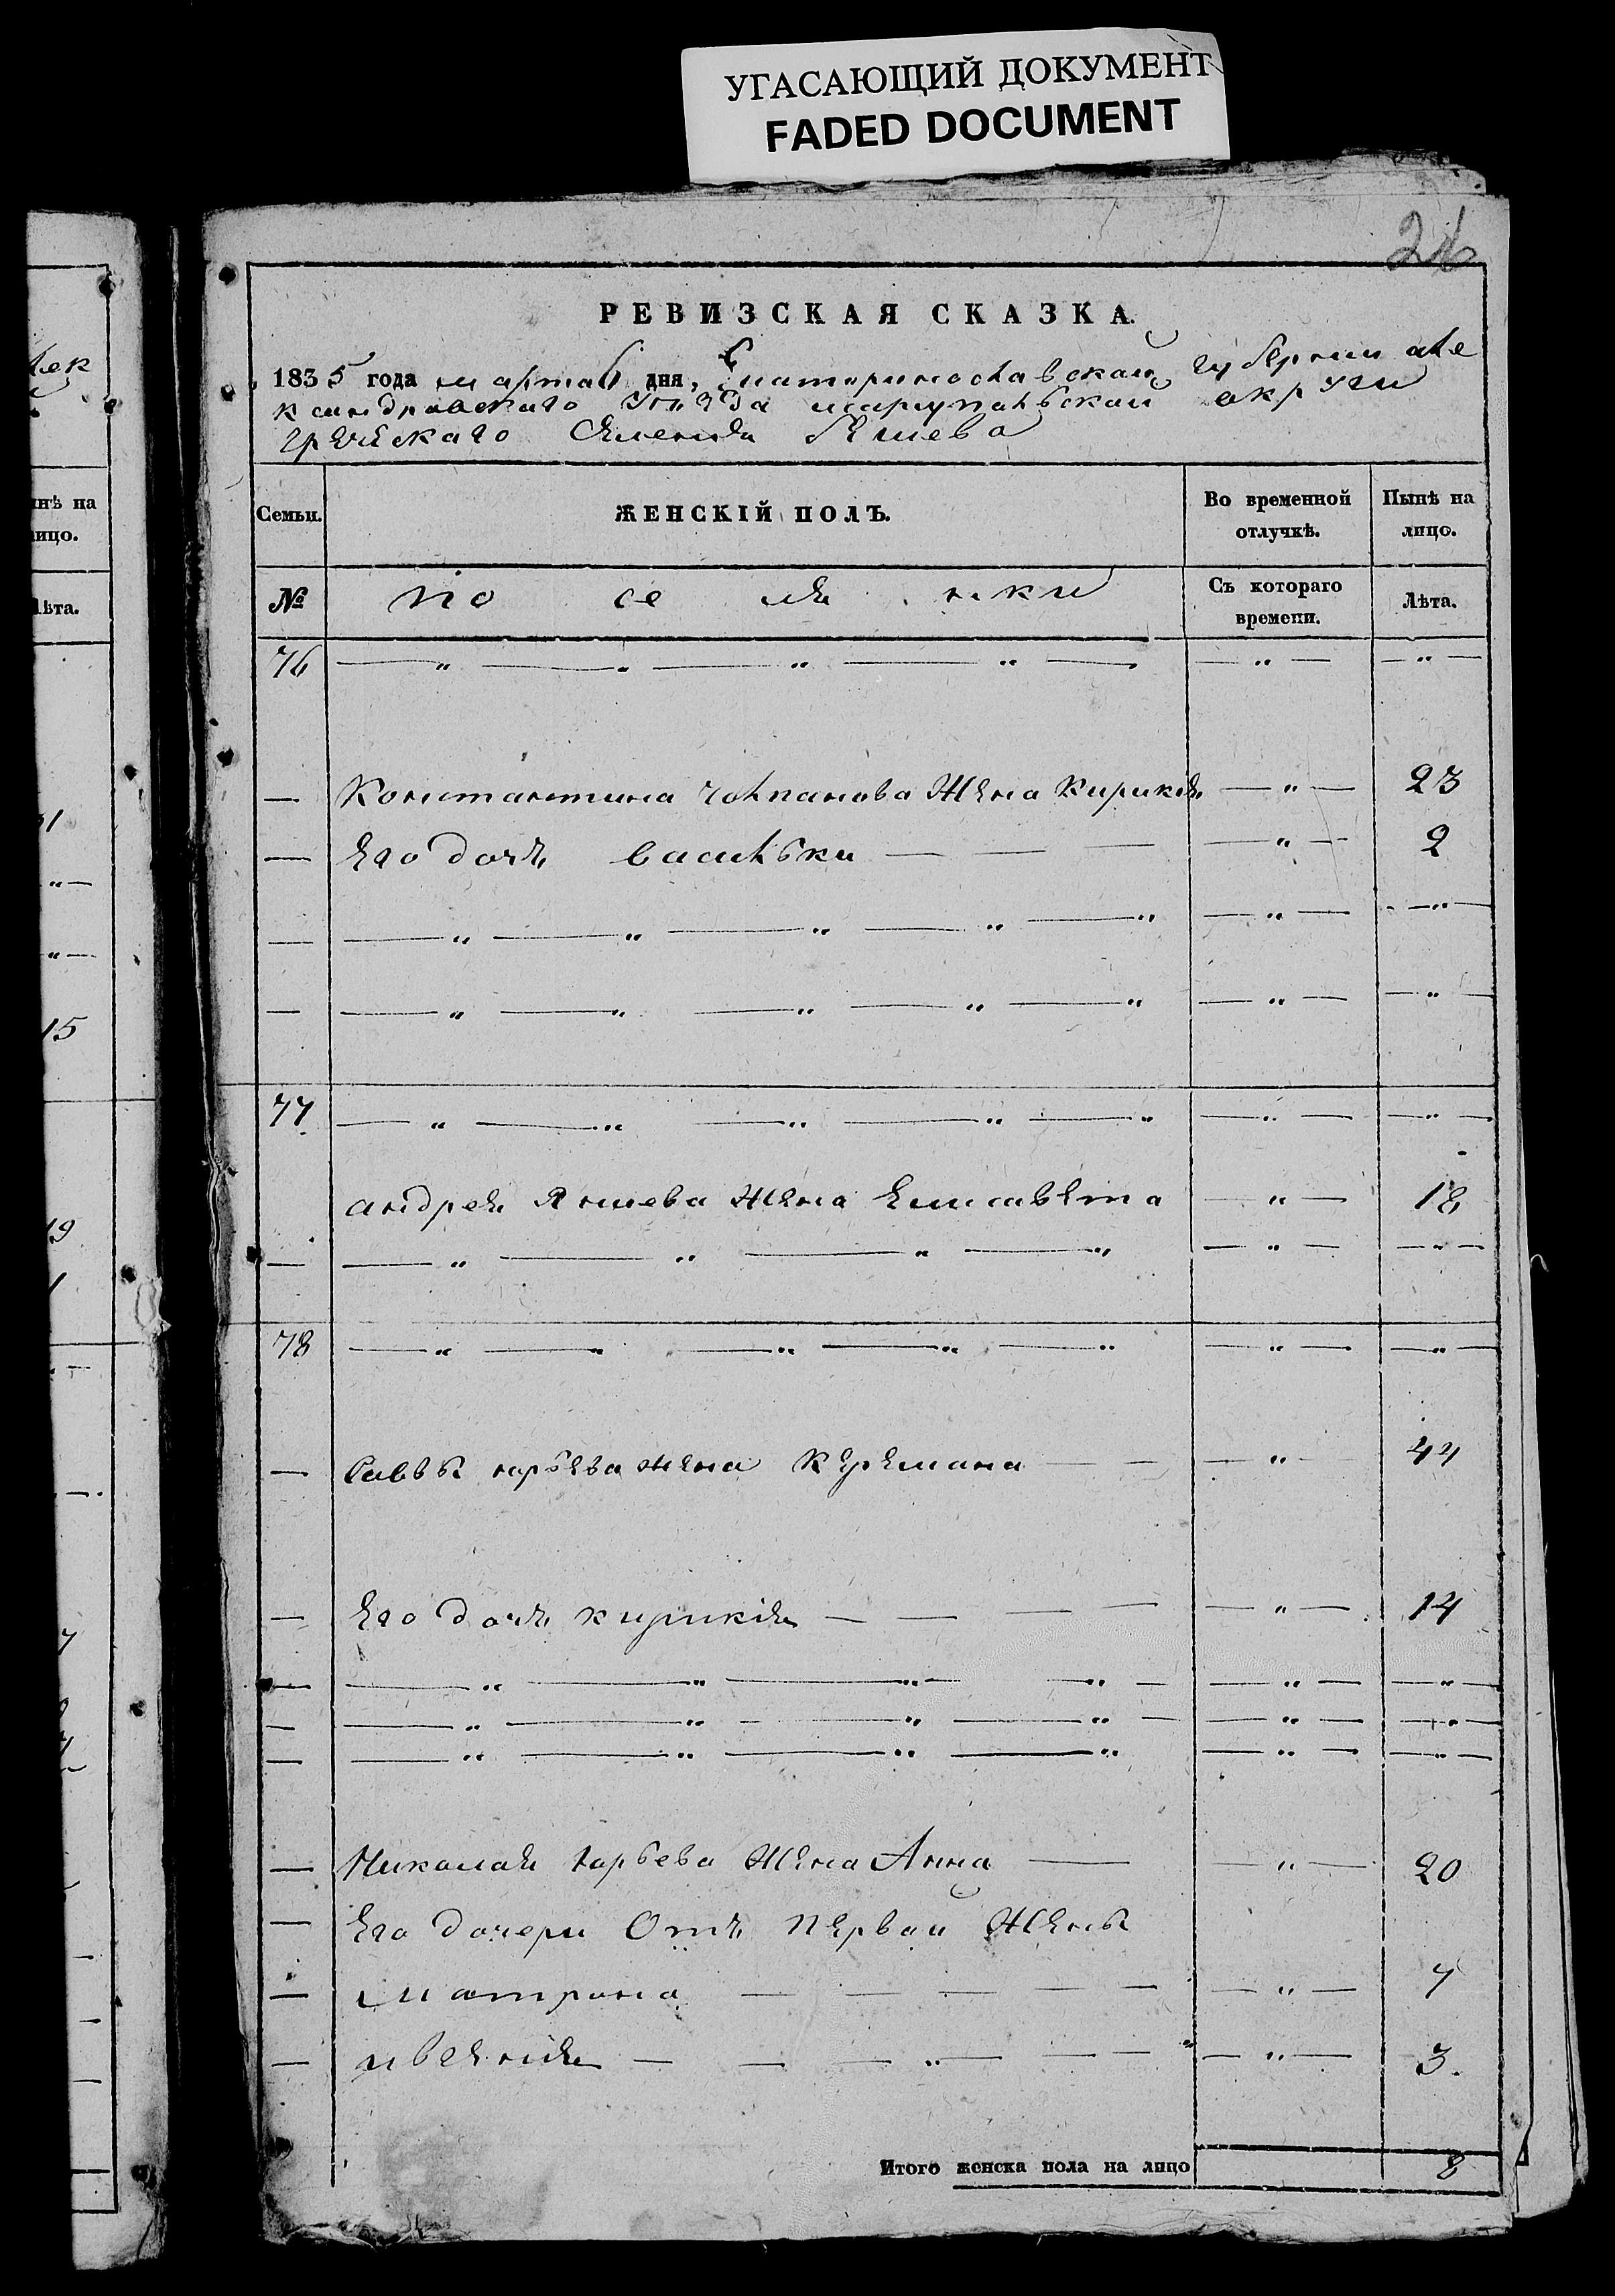 УГАСАЮЩИЙ ДОКУМЕНТ
FADED DOCUMENT
24
РЕВИЗСКАЯ СКАЗКА.
1835 года марта 6 дня, Екатеринославской губернии але
ксандровскаго уѣзда мариупольской округи
греческаго селения бешева
Семьи.
ЖЕНСКІЙ ПОЛЪ.
Во временной отлучкѣ.
Нынѣ на лицо.
№
поселянки
Съ котораго времени.
Лѣта.
76 — " — " — " — " — — " — — " —
— Константина чолпанова Жена Кирикія — " — 23
— Его дочъ васильки — — — — " — 2
— — " — " — " — " — " — " — — " —
— — " — " — " — " — " — " — — " —
77 — " — " — " — " — " — " — — " —
андрея Яншева Жена Елисавета — " — 18
— — " — " — " — " — " — — " —
78 — " — " — " — " — " — " — — " —
— Саввы юрьева жена Керемана — — — " — 44
— Его дочъ кирикія — — — — — " — 14
— — " — " — " — " — — " — — " —
— — " — " — " — " — — " — — " —
— — " — " — " — " — " — — " —
— Николая юрьева Жена Анна — — " — 20
— Его дочери Отъ первой Жены
— матрона — — — — — — " — 7
— ивгения — — — " — — — — " — 3.
Итого женска пола на лицо 8
нѣ на
ицо.
Лѣта.
15
19